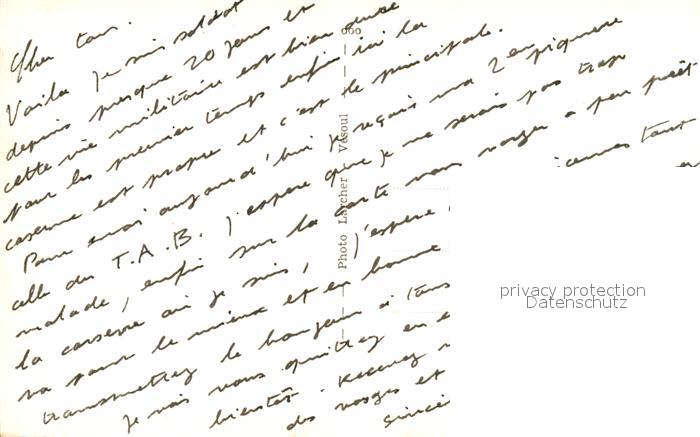 Cher tous.
Voila je suis soldat
depuis presque 20 jours et
cette vie militaire est bien dure
pour les premier temps enfin ici la
caserne est propre et c'est le principale.
Pour moi aujourd'hui je reçais ma 2 en piquere
celle du T.A.B. J'espere que je ne serais pas trop
malade, enfin sur la carte vous voyez a peu prêt
la caserne ou je suis, J'espere
iennes tout
va pour le mieux et en bonne
transmettrez le bonjour a tous
Je vais vous quittez en
bientot. Recevez
des vosges et
Sincè
Photo Larcher Vesoul
privacy protection
Datenschutz